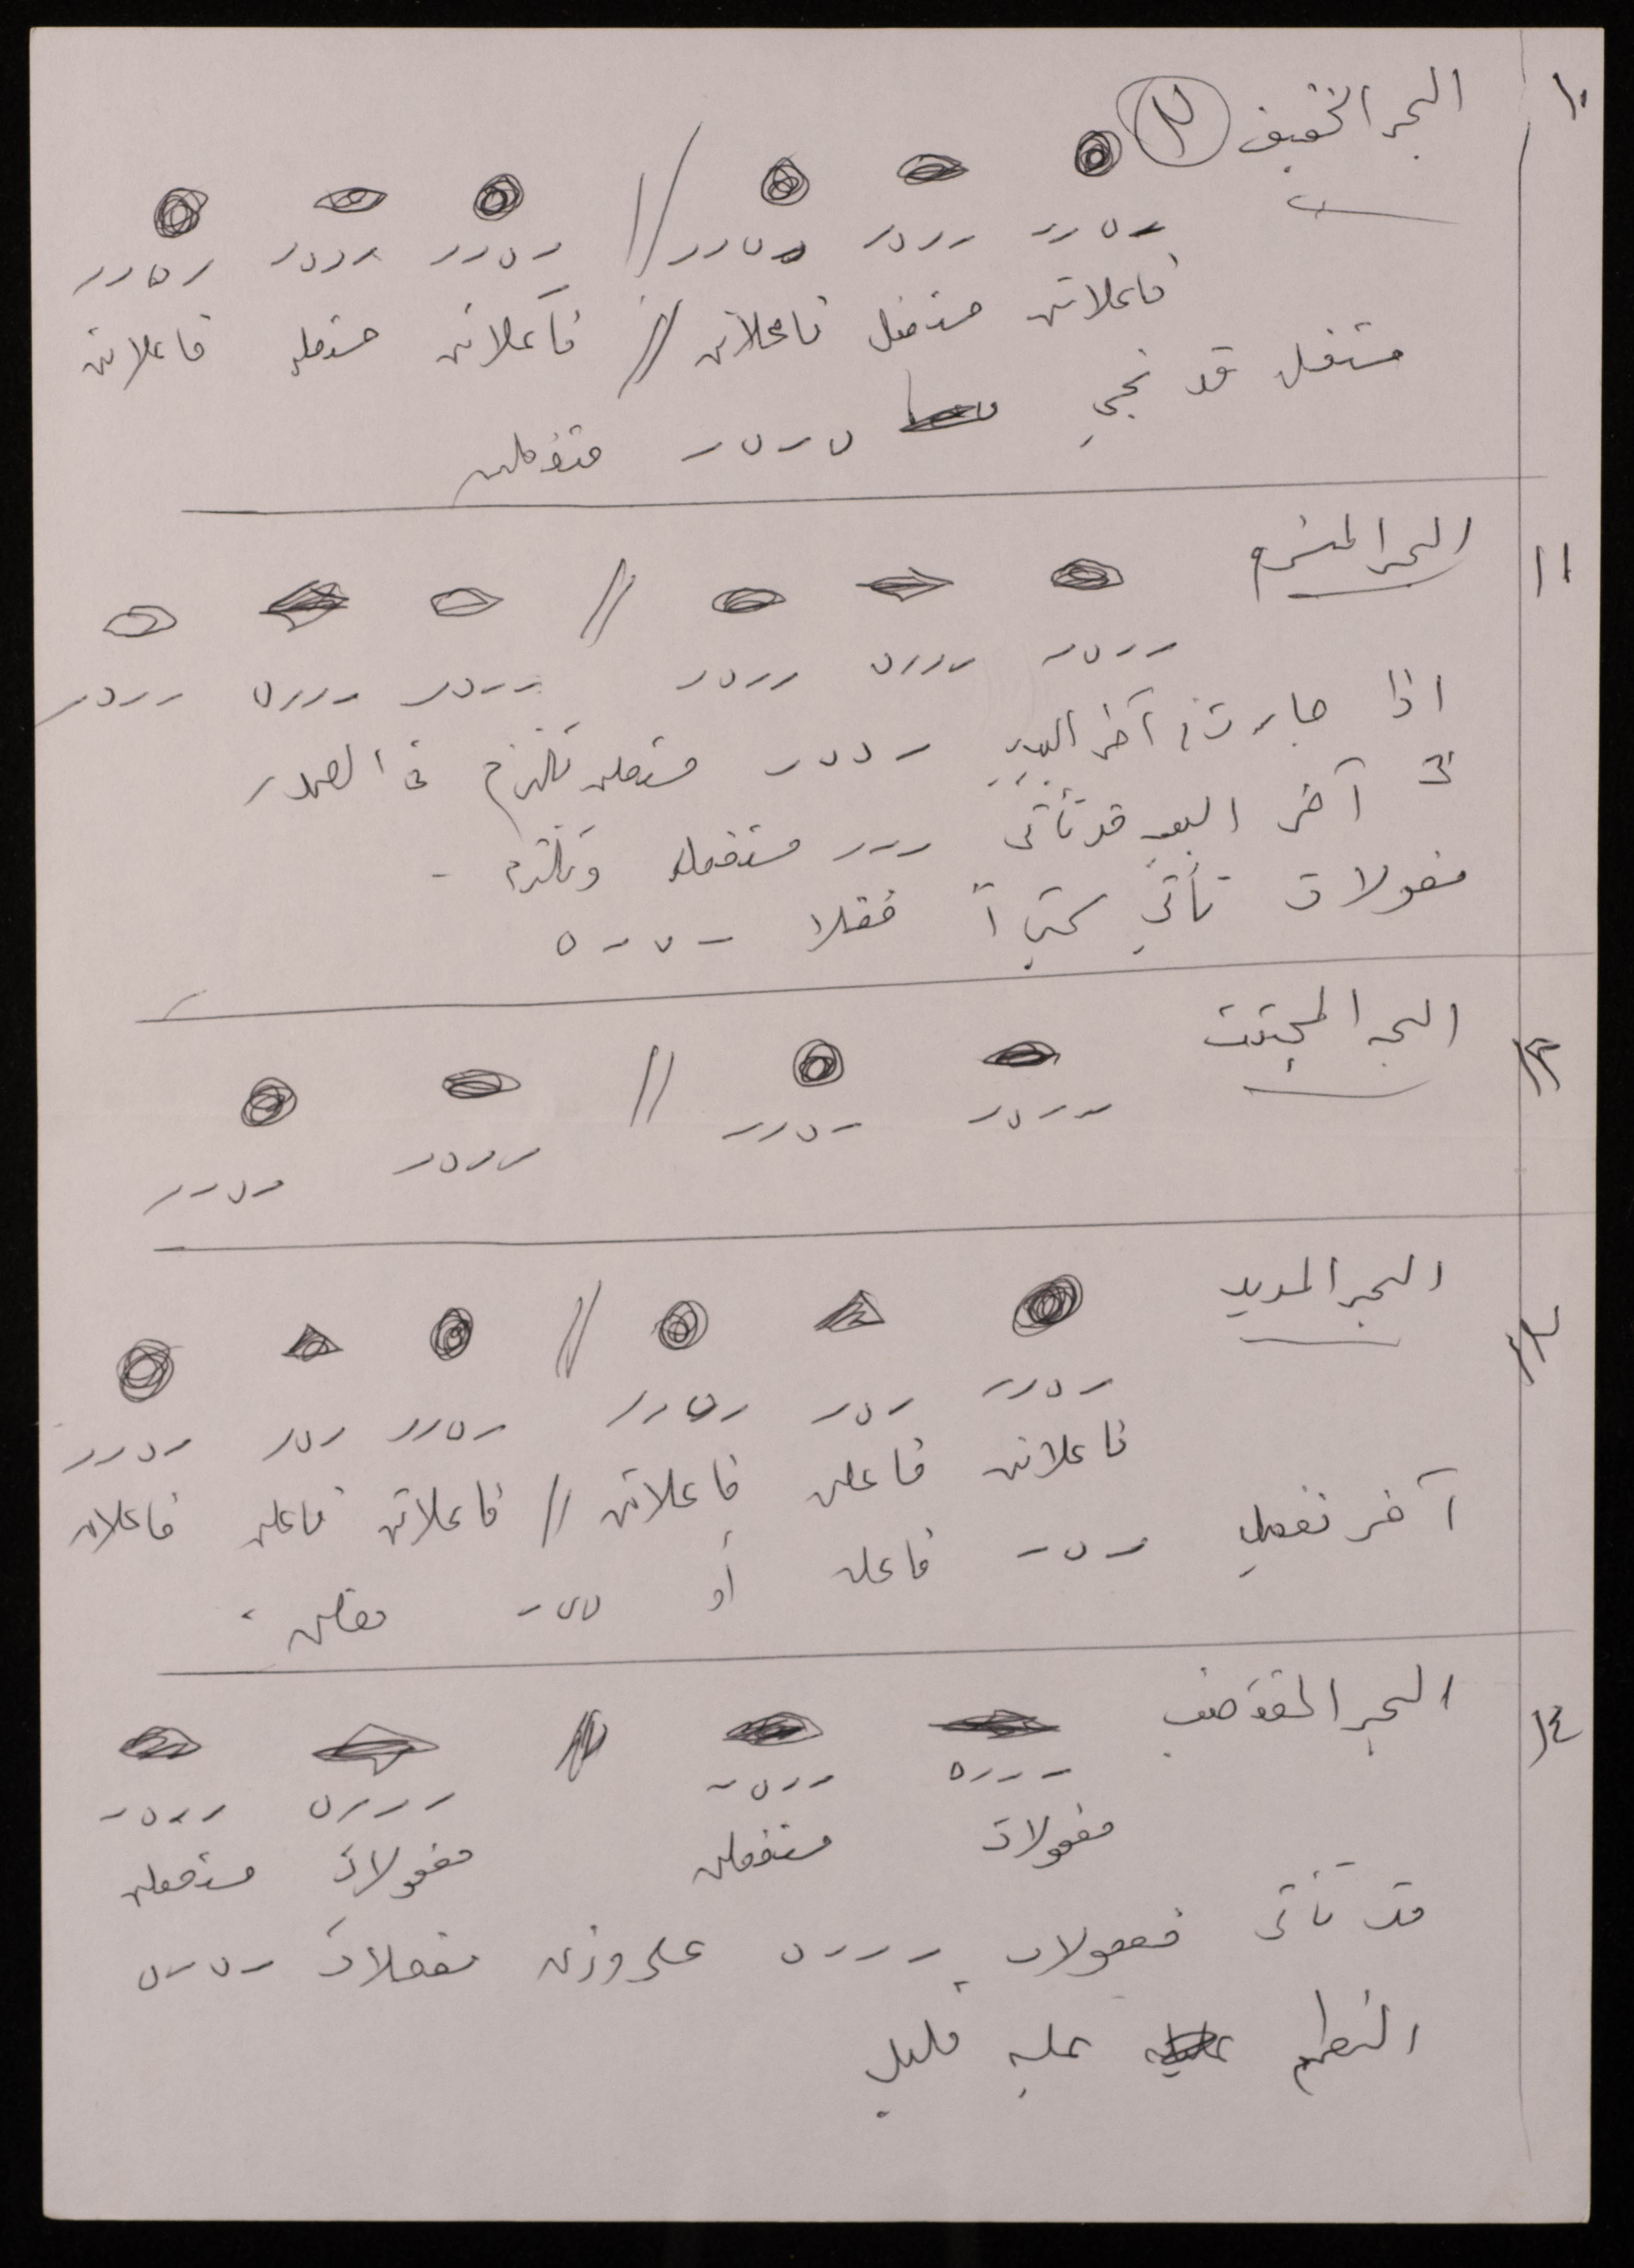 ١٠ البحر الخفيف ٣
- ں - - - - ں - - ں - - // - ں - - - - ں - - ں - -
فاعلاتن مستفعلن فاعلاتن // فاعلاتن مستفعلن فاعلاتن
مستفعلن قد تجي ں - ں - متفعلن
١١ البحر المنسرح
- - ں - - - - ں - - ں - - - ں - - - - ں - - ں -
اذا جاءت في آخر البيت - ں ں - مستعلن تلتزم في الصدر
في آخر البيت قد تأتي - - - مستفعل وتلتزم -
مفعولات تأتي كثيراً فعلا - ں - ں
١٢ البحر المجتث
- - ں - - ں - - // - - ں - - ں - -
١٣ البحر المديد
- ں - - - ں - - ں - - // - ں - - - ں - - ں - -
فاعلاتن فاعلن فاعلاتن // فاعلاتن فاعلن فاعلاتن
آخر تفعيل - ں - فاعلن أو ں ں - فعلن
١٤ البحر المقتضب
- - - ں - - ں - // - - - ں - - ں -
مفعولات مستفعلن مفعولات مستفعلن
قد تأتي مفعولات - - - ں على وزن مفعلات - ں - ں
النظم عليه قليل